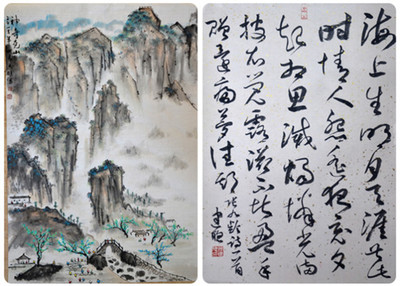 海上生明月天涯共此
时情人怨遥夜竟夕
起相思灭烛怜光满
披衣觉露滋不堪盈手
赠还寝梦佳期 张九龄诗一首